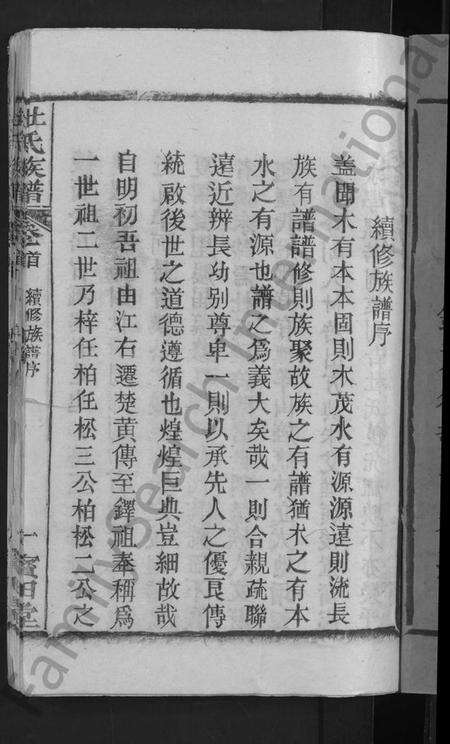 續修族譜序
蓋聞木有本本固則木茂水有源源遠則流長
族有譜譜修則族聚故族之有譜猶木之有本
水之有源也譜之爲義大矣哉一則合親疏聯
遠近辨長幼别尊卑一則以承先人之優良傳
統啟後世之道德遵循也煌煌巨典豈細故哉
自明初吾祖由江右遷楚黃傳至鐸祖奉稱爲
一世祖二世乃梓任柏任松三公柏松二公之
杜氏族譜
卷首
續修族譜序
一
寳田堂
FamilySearch International